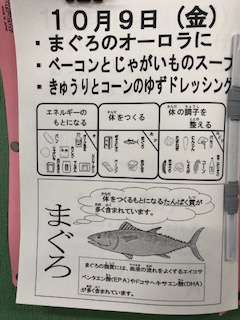 10月9日(金)
・まぐろのオーロラに
・ベーコンとじゃがいものスープ
・きゅうりとコーンのゆずドレッシング
エネルギーの
もとになる
体をつくる
体の調子を
整える
体をつくるもとになるたんぱく質が
多く含まれています。
まぐろ
まぐろの脂質には、血液の流れをよくするエイコサ
ペンタエン酸(EPA)やドコサヘキサエン酸(DHA)
が多く含まれています。